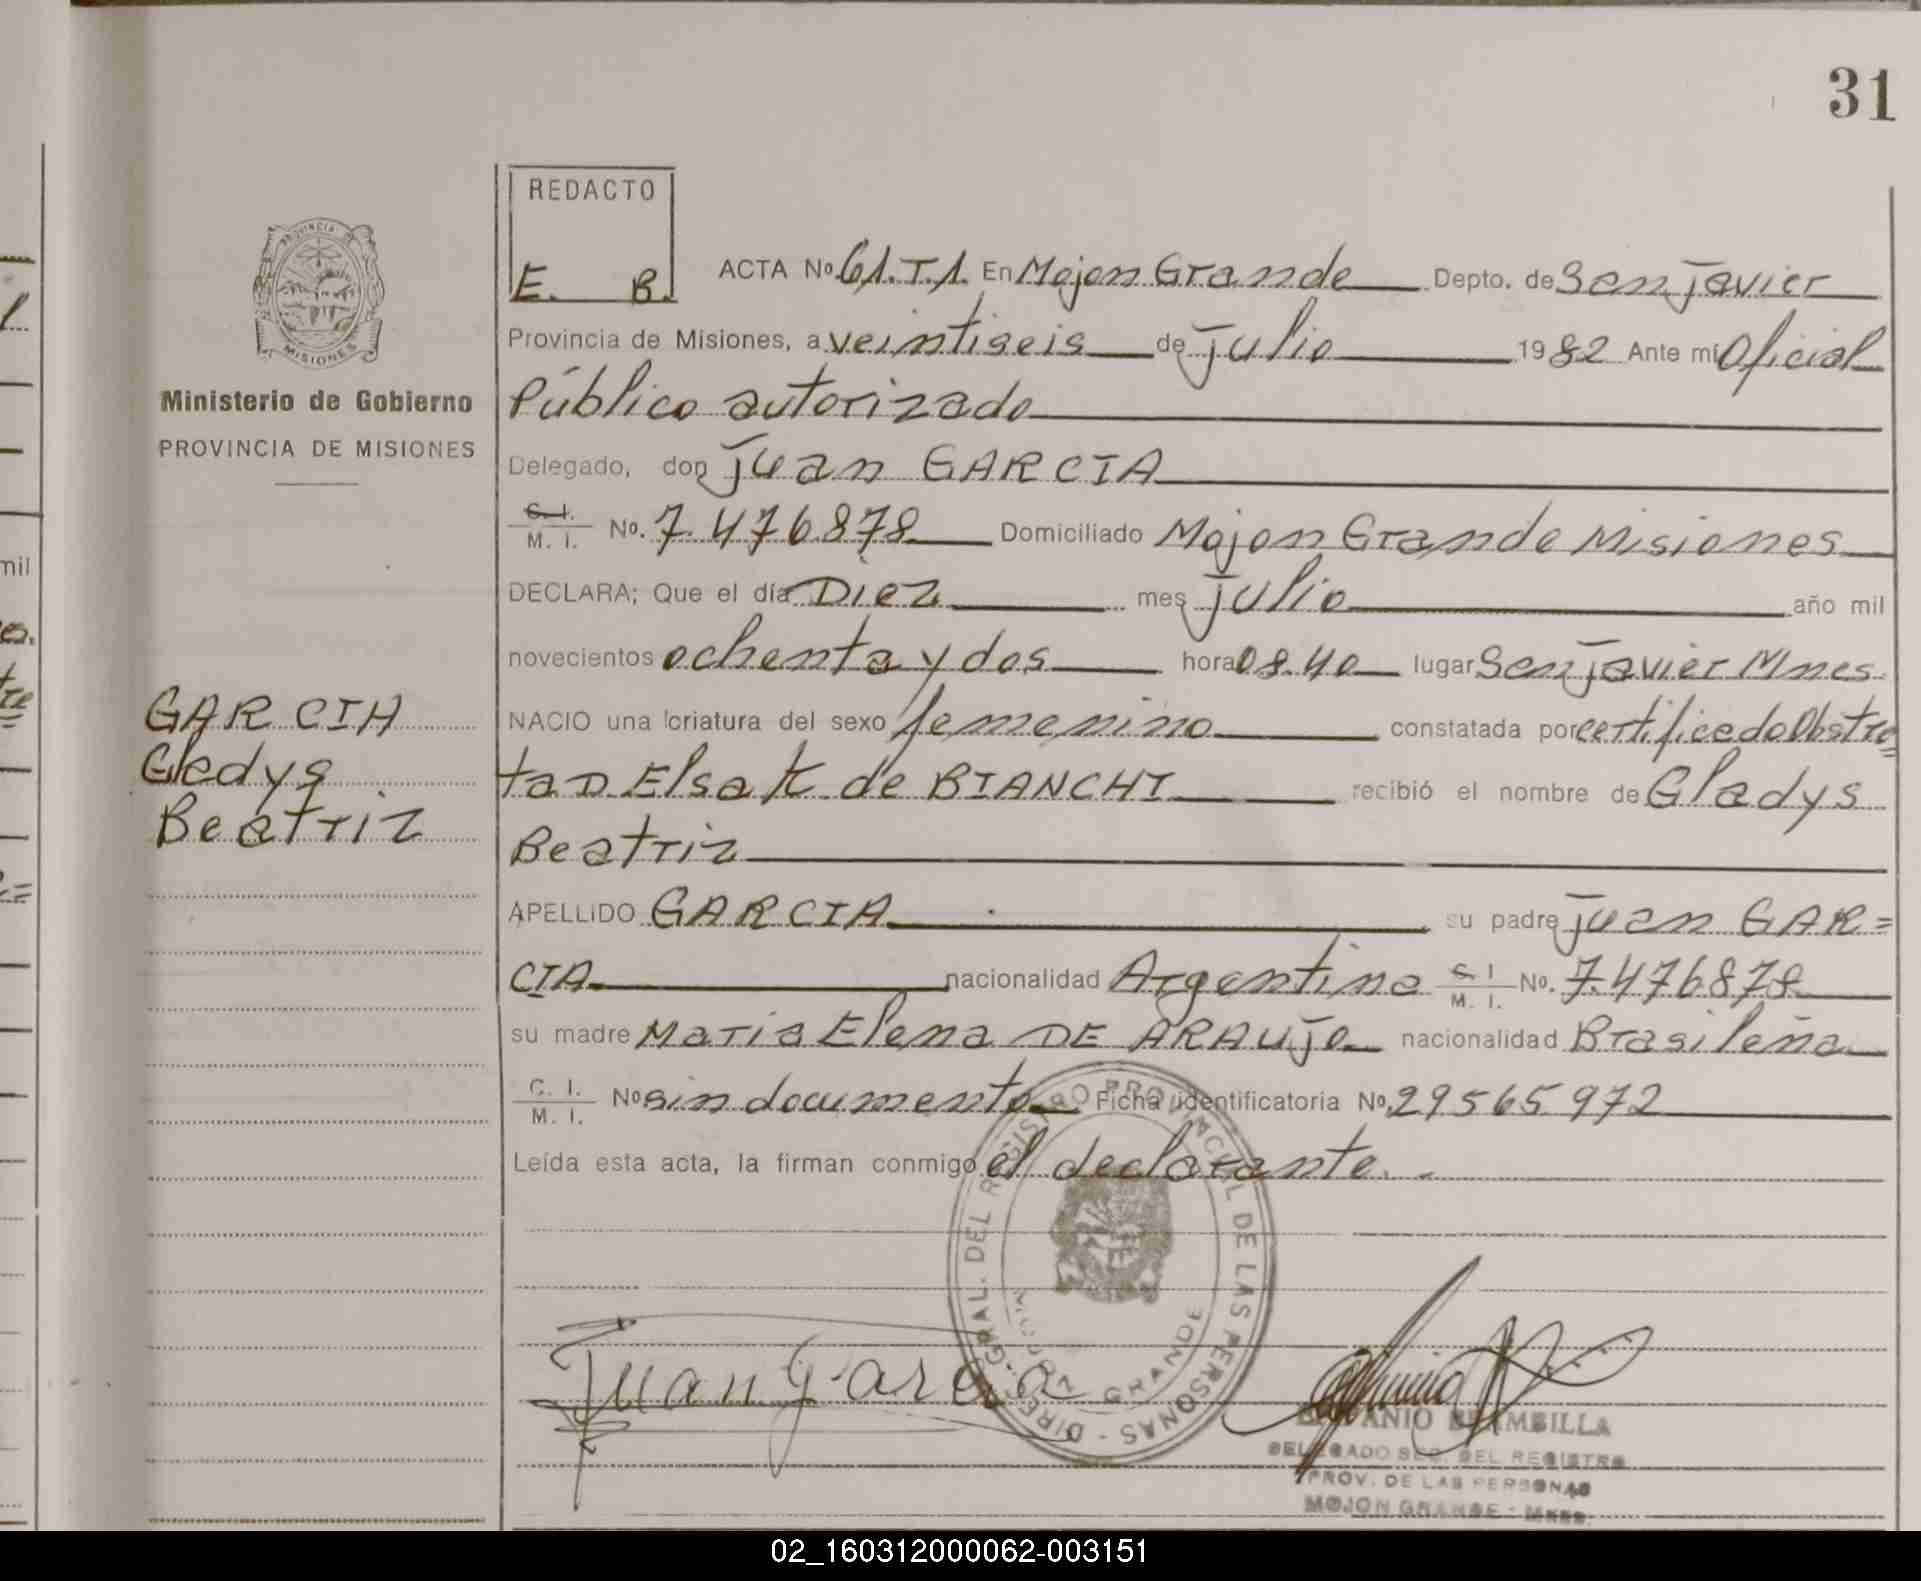 31
REDACTO
E. B.
PROVINCIA DE
MISIONES
Ministerio de Gobierno
PROVINCIA DE MISIONES
GARCIA
Gladys
Beatriz
ACTA No. 61.T.1. En Mojon Grande Depto. de San Javier
Provincia de Misiones, a veintiseis de Julio 1982 Ante mí Oficial
Público autorizado
Delegado, don Juan GARCIA
C. I. M. I. No. 7.476.878 Domiciliado Mojon Grande Misiones
DECLARA; Que el día Diez mes Julio año mil
novecientos ochenta y dos hora 08.40 lugar San Javier Mnes.
NACIO una criatura del sexo femenino constatada por certificado Obstre=
ta D Elsa K de BIANCHI recibió el nombre de Gladys
Beatriz
APELLIDO GARCIA su padre Juan GAR=
CIA nacionalidad Argentina C. I. M. I. No. 7.476.878
su madre Maria Elena DE ARAUJO nacionalidad Brasileña
C. I. M. I. No sin documento Ficha identificatoria No. 29565972
Leída esta acta, la firman conmigo el declarante.
DIREC. GRAL. DEL REGISTRO PROVINCIAL DE LAS PERSONAS
MOJON GRANDE
Juan Garcia
BRAMBILLA
DELEGADO SEC. DEL REGISTRO
PROV. DE LAS PERSONAS
MOJON GRANDE - Mnes.
mil
02_160312000062-003151